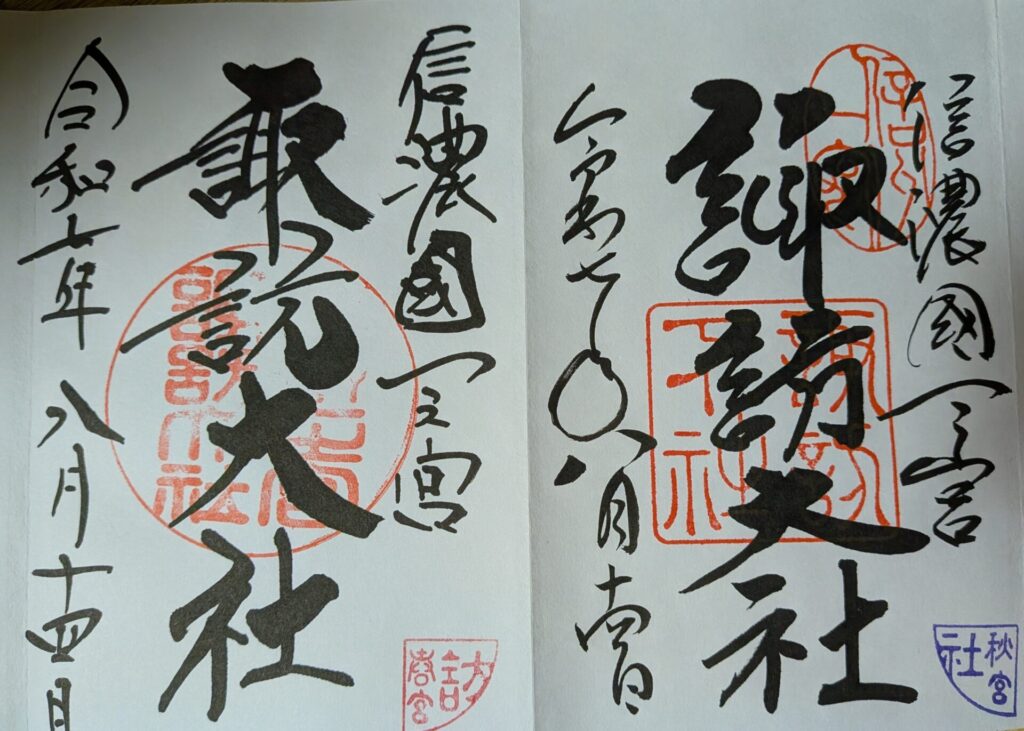 信濃國一之宮
諏訪大社
令和七年八月十四日
秋宮
社
信濃國一之宮
諏訪大社
令和七年八月十四日
訪
春宮